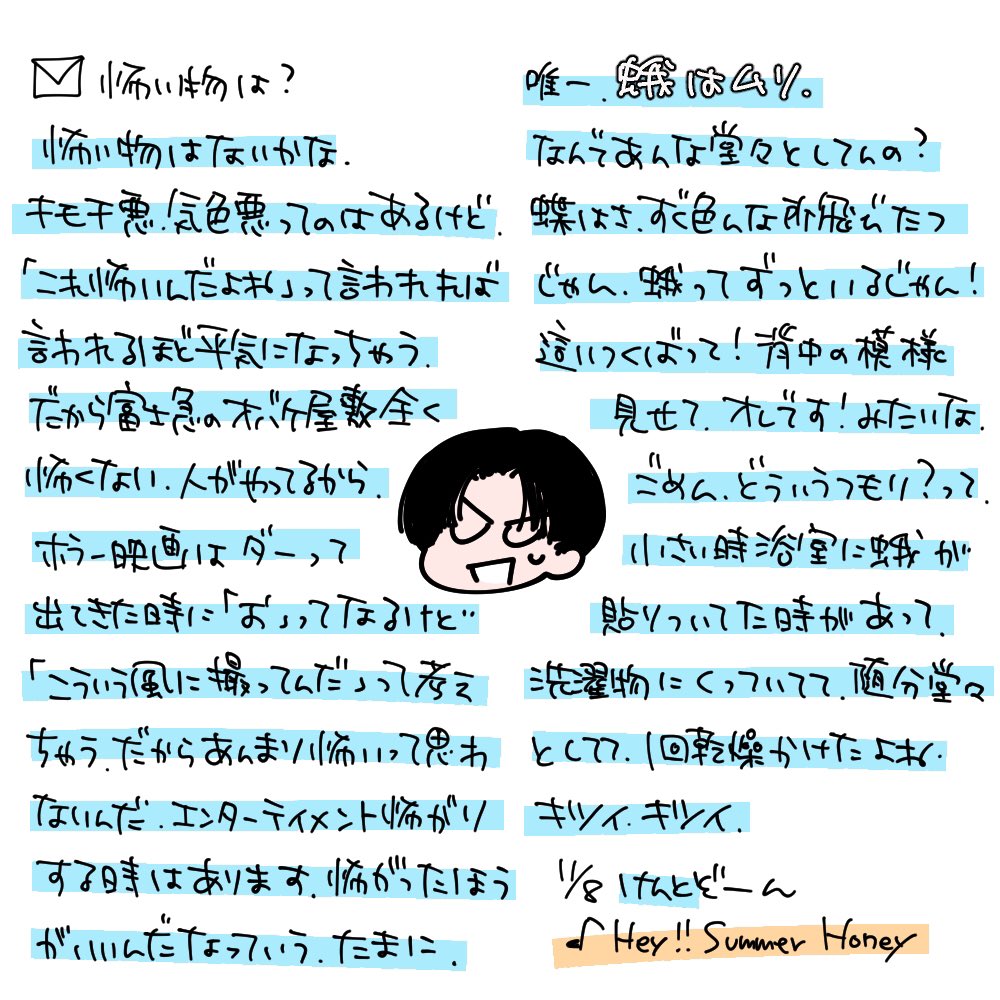 怖い物は?
怖い物はないかな.
キモチ悪.気色悪ってのはあるけど.
「これ怖いんだよね」って言われれば
言われるほど平気になっちゃう.
だから富士急のオバケ屋敷全く
怖くない.人がやってるから.
ホラー映画はダーって
出てきた時に「お」ってなるけど‥
「こういう風に撮ってんだ」って考え
ちゃう.だからあんまり怖いって思わ
ないんだ.エンターテイメント怖がり
する時はあります.怖がったほう
がいいんだなっていう.たまに.
唯一.蛾はムリ。
なんであんな堂々としてんの?
蝶はさ.すぐ色んな所飛びたつ
じゃん.蛾ってずっといるじゃん!
這いつくばって!背中の模様と
見せて.オレです!みたいな.
ごめん.どういうつもり?って.
小さい時浴室に蛾が
貼りついてた時があって.
洗濯物にくっついてて.随分堂々
としてて.1回乾燥かけたよね.
キツイ.キツイ.
11/8 けんとどーん
♪Hey!! Summer Honey